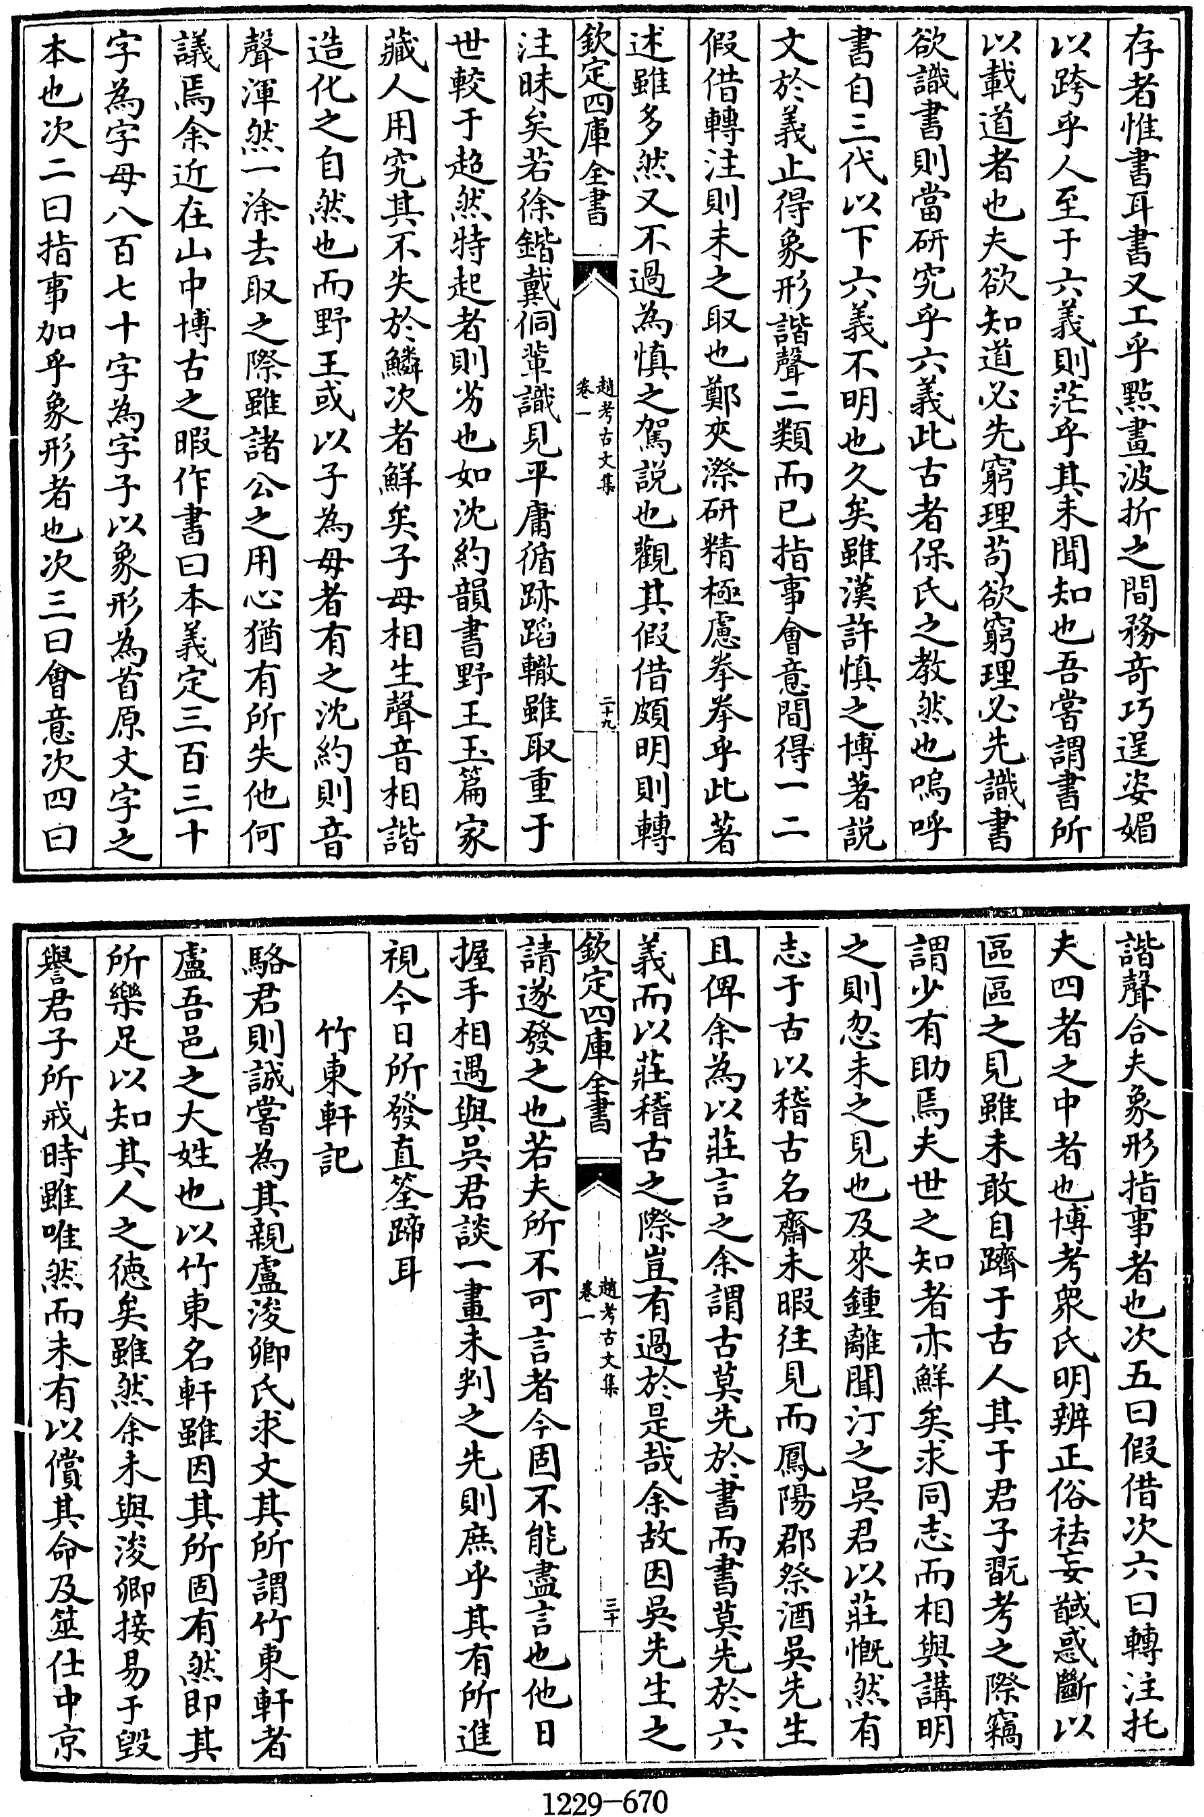 存者惟書耳書又工乎點畫波折之間務竒巧逞姿媚
以跨乎人至于六義則茫乎其未聞知也吾嘗謂書所
以載道者也夫欲知道必先窮理茍欲窮理必先識書
欲識書則當研究乎六義此古者保氏之教然也嗚呼
書自三代以下六義不明也久矣雖漢許慎之博著説
文於義止得象形諧聲二類而已指事會意間得一二
假借轉注則未之取也鄭夾漈研精極慮拳拳乎此著
述雖多然又不過為慎之駕説也觀其假借頗明則轉
欽定四庫全書
趙考古文集
卷一
二十九
注昧矣若徐鍇戴侗輩識見平庸循跡蹈轍雖取重于
世較于超然特起者則劣也如沈約韻書野王玉篇家
藏人用究其不失於鱗次者鮮矣子母相生聲音相諧
造化之自然也而野王或以子為母者有之沈約則音
聲渾然一涂去取之際雖諸公之用心猶有所失他何
議焉余近在山中博古之暇作書曰本義定三百三十
字為字母八百七十字為字子以象形為首原文字之
本也次二曰指事加乎象形者也次三曰會意次四曰
諧聲合夫象形指事者也次五曰假借次六曰轉注托
夫四者之中者也博考衆氏明辨正俗祛妄馘惑斷以
區區之見雖未敢自躋于古人其于君子翫考之際竊
謂少有助焉夫世之知者亦鮮矣求同志而相與講明
之則忽未之見也及來鍾離聞汀之吳君以莊慨然有
志于古以稽古名齋未暇往見而鳳陽郡祭酒吳先生
且俾余為以莊言之余謂古莫先於書而書莫先於六
義而以莊稽古之際豈有過於是哉余故因吳先生之
欽定四庫全書
趙考古文集
卷一
三十
請遂發之也若夫所不可言者今固不能盡言也他日
握手相遇與吳君談一畫未判之先則庶乎其有所進
視今日所發直筌蹄耳
竹東軒記
駱君則誠嘗為其親盧浚卿氏求文其所謂竹東軒者
盧吾邑之大姓也以竹東名軒雖因其所固有然即其
所樂足以知其人之徳矣雖然余未與浚卿接易于毀
譽君子所戒時雖唯然而未有以償其命及筮仕中京
1229—670